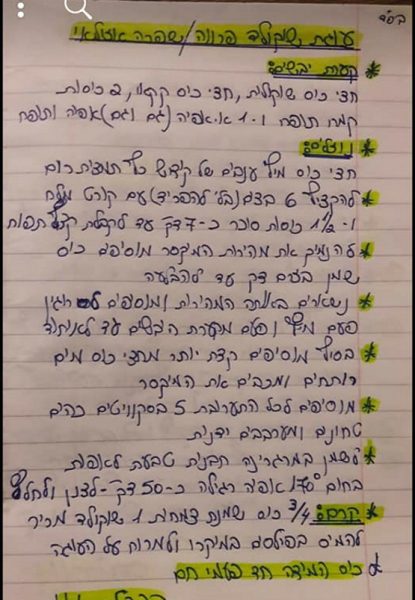 בס"ד
עוגת שוקולד פרווה/שפרה אזולאי
* קערת יבשים:
חצי כוס שוקולית, חצי כוס קקאו, 2 כוסות
קמח תופח ו-1 א.אפיה (גם וגם) אפיה ותופח
* נוזלים:
חצי כוס מיץ ענבים של קידוש כף תמצית רום
* להקציף 6 בצים (בלי להפריד) עם קורט מלח
ו-1/2 1 כוסות סוכר כ-7 דק' עד לקבלת קצף תפוח
* להנמיך את מהירות המקסר מוסיפים כוס
שמן בזרם דק עד להבלעה
* נשארים באותה המהירות ומוסיפים לסרוגין
פעם מיץ ופעם מקערת היבשים עד לאיחוד
* בסוף מוסיפים קצת יותר מחצי כוס מים
רותחים ומכבים את המיקסר
* מוסיפים לכל התערובת 5 בסקוויטים כהים
טחונים ומערבבים ידנית
* לשמן במרגרינה תבנית טבעת לאפות
בחום 170° אפיה רגילה כ-50 דק'-לצנן ולחלץ
* קרם: 3/4 כוס שמנת צמחית 1 שוקולד מריר
להמיס בפולסים במיקרו ולמרוח על העוגה
* כוס המידה חד פעמי חם